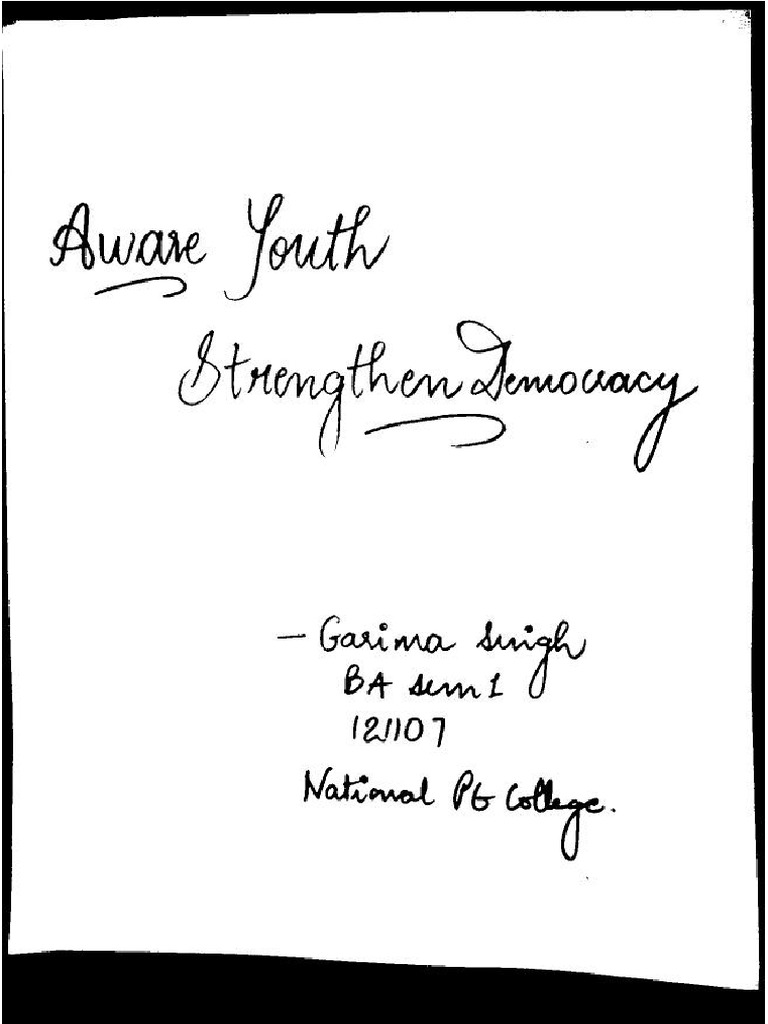 Aware Youth
Strengthen Democracy
- Garima Singh
BA sem 1
121107
National PG College.